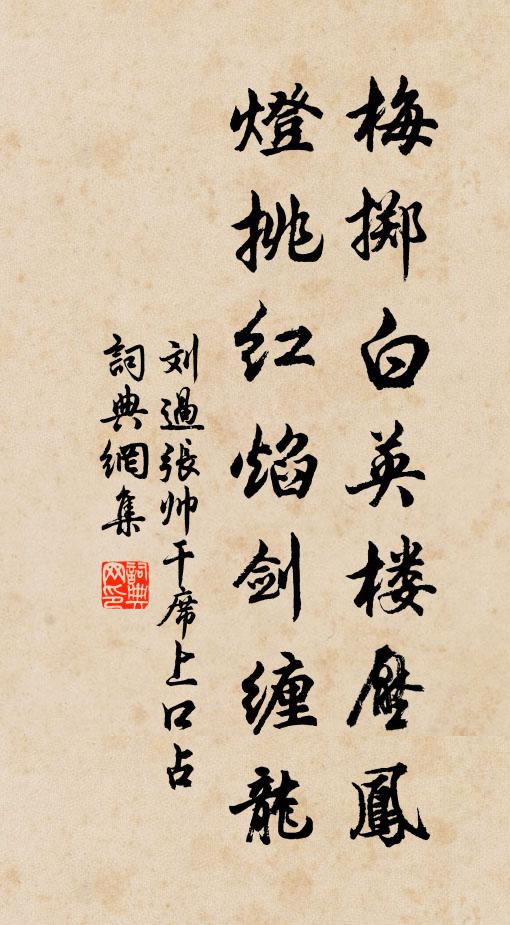 梅掷白英楼壓鳳
燈挑红焰剑缠龍
刘過張帅干席上口占
詞典網集
詞典
网印